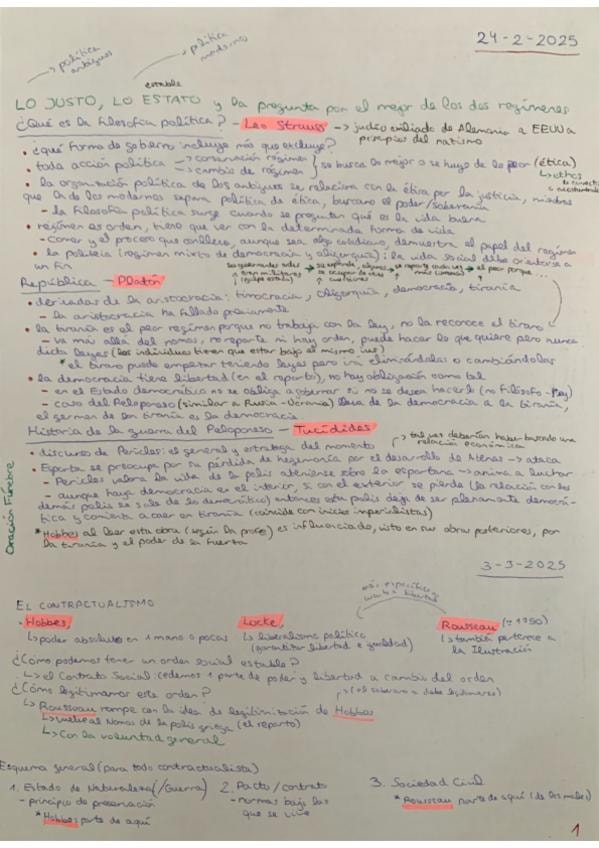 24-2-2025
→ política antiguos
→ política moderna
estable
LO JUSTO, LO ESTATO y la pregunta por el mejor de los dos regímenes
¿Qué es la filosofía política? - Leo Strauss → judío exiliado de Alemania a EEUU a principios del nazismo
• ¿qué forma de gobierno incluye más que excluye?
• toda acción política → conservación régimen
→ cambio de régimen } se busca lo mejor o se huye de lo peor (ética)
↳ ethos
• la organización política de los antiguos se relaciona con la ética por la justicia, mientras
que la de los modernos separa política de ética, buscando el poder/soberanía
- la filosofía política surge cuando se preguntan qué es la vida buena
• régimen es orden, tiene que ver con la determinada forma de vida
- comer y el proceso que conlleva, aunque sea algo cotidiano, demuestra el papel del régimen
• la politeia (régimen mixto de democracia y oligarquía): la vida social debe orientarse a
un fin
República - Platón
• derivadas de la aristocracia: timocracia, oligarquía, democracia, tiranía
- la aristocracia ha fallado previamente
• la tiranía es el peor régimen porque no trabaja con la ley, no la reconoce el tirano
- va más allá del nomos, no reparte ni hay orden, puede hacer lo que quiere pero nunca
dicta leyes (los individuos tienen que estar bajo el mismo ius)
* el tirano puede empezar teniendo leyes pero irá eliminándolas o cambiándolas
• la democracia tiene libertad (en el reparto), no hay obligación como tal
- en el Estado democrático no se obliga a gobernar si no se desea hacerlo (no Filósofo-Rey)
- caso del Peloponeso (similar a Rusia-Ucrania) lleva de la democracia a la tiranía,
el germen de la tiranía es la democracia
Historia de la guerra del Peloponeso - Tucídides
→ tal vez deberían haber buscado una relación económica
Oración Fúnebre
• discurso de Pericles: el general y estratega del momento
• Esparta se preocupa por su pérdida de hegemonía por el desarrollo de Atenas → ataca
- Pericles valora la vida de la polis ateniense sobre la espartana → anima a luchar
- aunque haya democracia en el interior, si con el exterior se pierde (la relación con las
demás polis se sale de lo democrático) entonces esta polis deja de ser plenamente democrá-
tica y comienza a caer en tiranía (coincide con inicios imperialistas)
* Hobbes al leer esta obra (según la profe) es influenciado, visto en sus obras posteriores, por
la tiranía y el poder de la fuerza
3-3-2025
EL CONTRACTUALISMO
• Hobbes,
↳ poder absoluto en 1 mano o pocas
Locke,
↳ liberalismo político
(garantizar libertad e igualdad)
Rousseau (≈ 1750)
↳ también pertenece a
la Ilustración
¿Cómo podemos tener un orden social estable?
↳ el Contrato Social: cedemos 1 parte de poder y libertad a cambio del orden
¿Cómo legitimamos este orden?
→ (el soberano a debe legitimarse)
↳ Rousseau rompe con la idea de legitimización de Hobbes
↳ vuelve al Nomos de la polis griega (el reparto)
↳ Con la voluntad general
Esquema general (para todo contractualista)
1. Estado de Naturaleza (/Guerra)
- principio de preservación
* Hobbes parte de aquí
2. Pacto/contrato
- normas bajo las
que se vive
3. Sociedad Civil
* Rousseau parte de aquí (de los males)
1